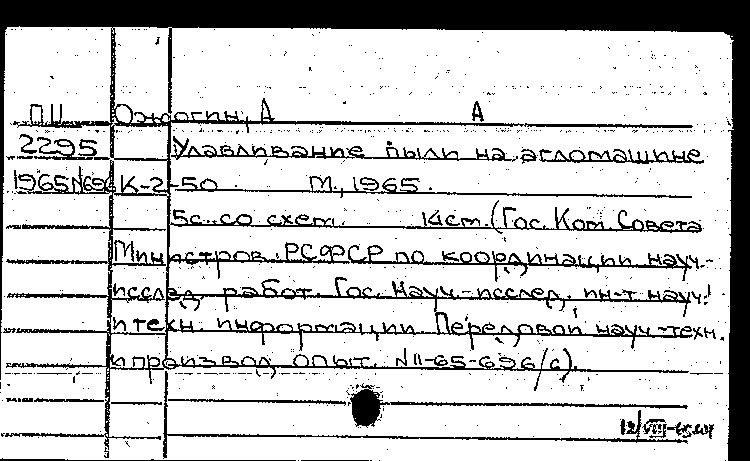 ПЦ Ожогин, А А
2295 Улавливание пыли на агломашине
1965 N696 К-2-50 М., 1965.
5с. со схем. 14см. (Гос. Ком. Совета
Министров РСФСР по координации науч.-
исслед. работ. Гос. науч.-исслед. ин-т науч.
и техн. информации. Передовой науч.-техн.
и производ. опыт. N11-65-696/6).
12/VIII-65